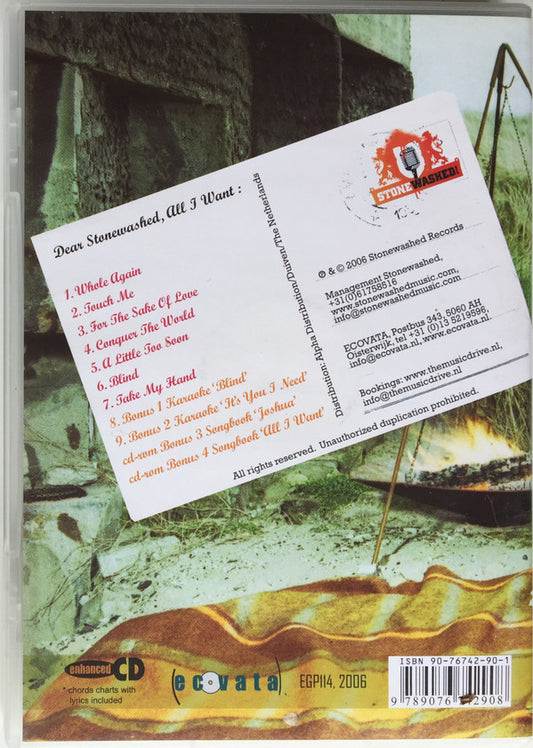 Dear Stonewashed, All I Want :
1. Whole Again
2. Touch Me
3. For The Sake Of Love
4. Conquer The World
5. A Little Too Soon
6. Blind
7. Take My Hand
8. Bonus 1 Karaoke 'Blind'
9. Bonus 2 Karaoke 'It's You I Need'
cd-rom Bonus 3 Songbook 'Joshua'
cd-rom Bonus 4 Songbook 'All I Want'
Distribution: Alpha Distribution/Duiven/The Netherlands
STONEWASHED!
℗ & © 2006 Stonewashed Records
Management Stonewashed,
+31(0)61758516
www.stonewashedmusic.com,
info@stonewashedmusic.com
ECOVATA, Postbus 343, 5060 AH
Oisterwijk, tel +31 (0)13 5219596,
info@ecovata.nl, www.ecovata.nl,
Bookings: www.themusicdrive.nl,
info@themusicdrive.nl
All rights reserved. Unauthorized duplication prohibited.
enhanced CD
* chords charts with
lyrics included
(ecovata)
EGP114, 2006
ISBN 90-76742-90-1
9 789076 2908